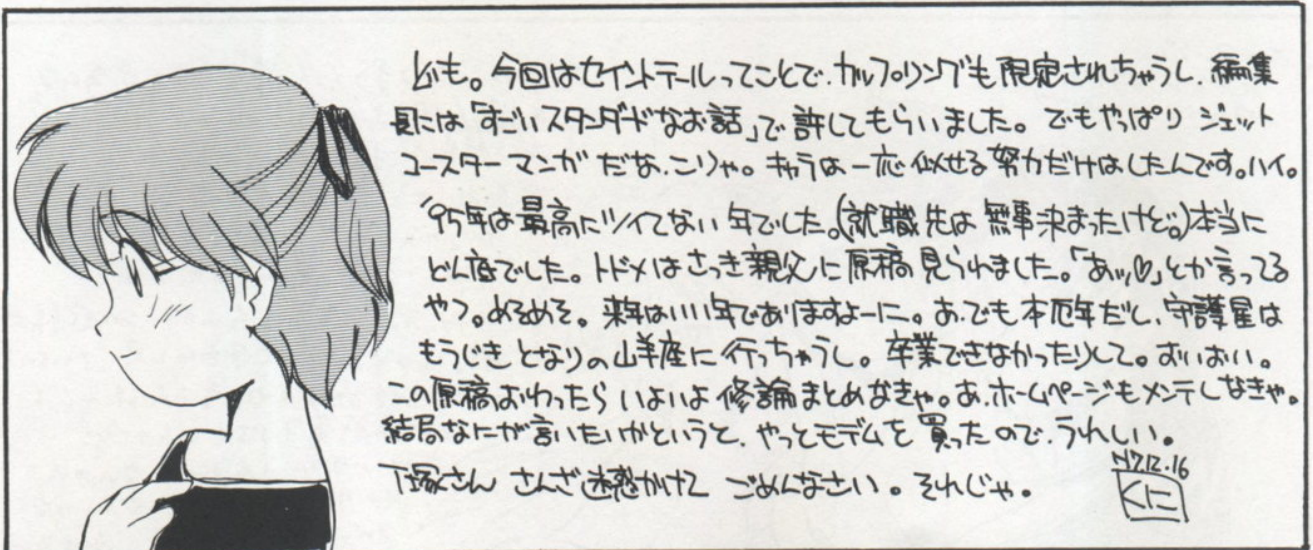 ども。今回はセイントテールってことで、カップリングも限定されちゃうし、編集
長には「すごいスタンダードなお話」で許してもらいました。でもやっぱりジェット
コースターマンガだな、こりゃ。キャラは一応似せる努力だけはしたんです。ハイ。
'95年は最高にツイてない年でした。(就職先は無事決まったけど。)本当に
どん底でした。トドメはさっき親父に原稿見られました。「あッ♡」とか言ってる
やつ。めそめそ。来年はいい年でありますよーに。あ、でも本厄年だし、守護星は
もうじきとなりの山羊座に行っちゃうし。卒業できなかったりして。おいおい。
この原稿おわったらいよいよ修論まとめなきゃ。あ、ホームページもメンテしなきゃ。
結局なにが言いたいかというと、やっとモデムを買ったので、うれしい。
塚さん さんざ迷惑かけて ごめんなさい。それじゃ。
12.16
くに